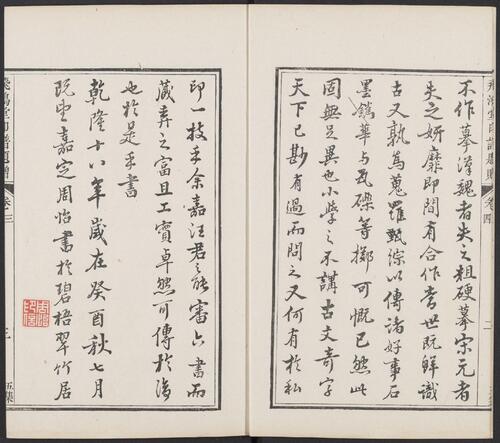 不作摹漢魏者失之粗硬摹宋元者
失之妍靡即間有合作當世既鮮識
古又孰為蒐羅甄綜以傳諸好事石
墨鐫華与瓦礫等擲可慨已然此
固無足異也小學之不講古文奇字
天下已尠有過而問之又何有於私
印一技乎余嘉汪君之能審六書而
藏弆之富且工實卓然可傳於後
也於是乎書
乾隆十八年歲在癸酉秋七月
既望嘉定周怡書於碧梧翠竹居
飛鴻堂印譜題贈 卷三 三 五集